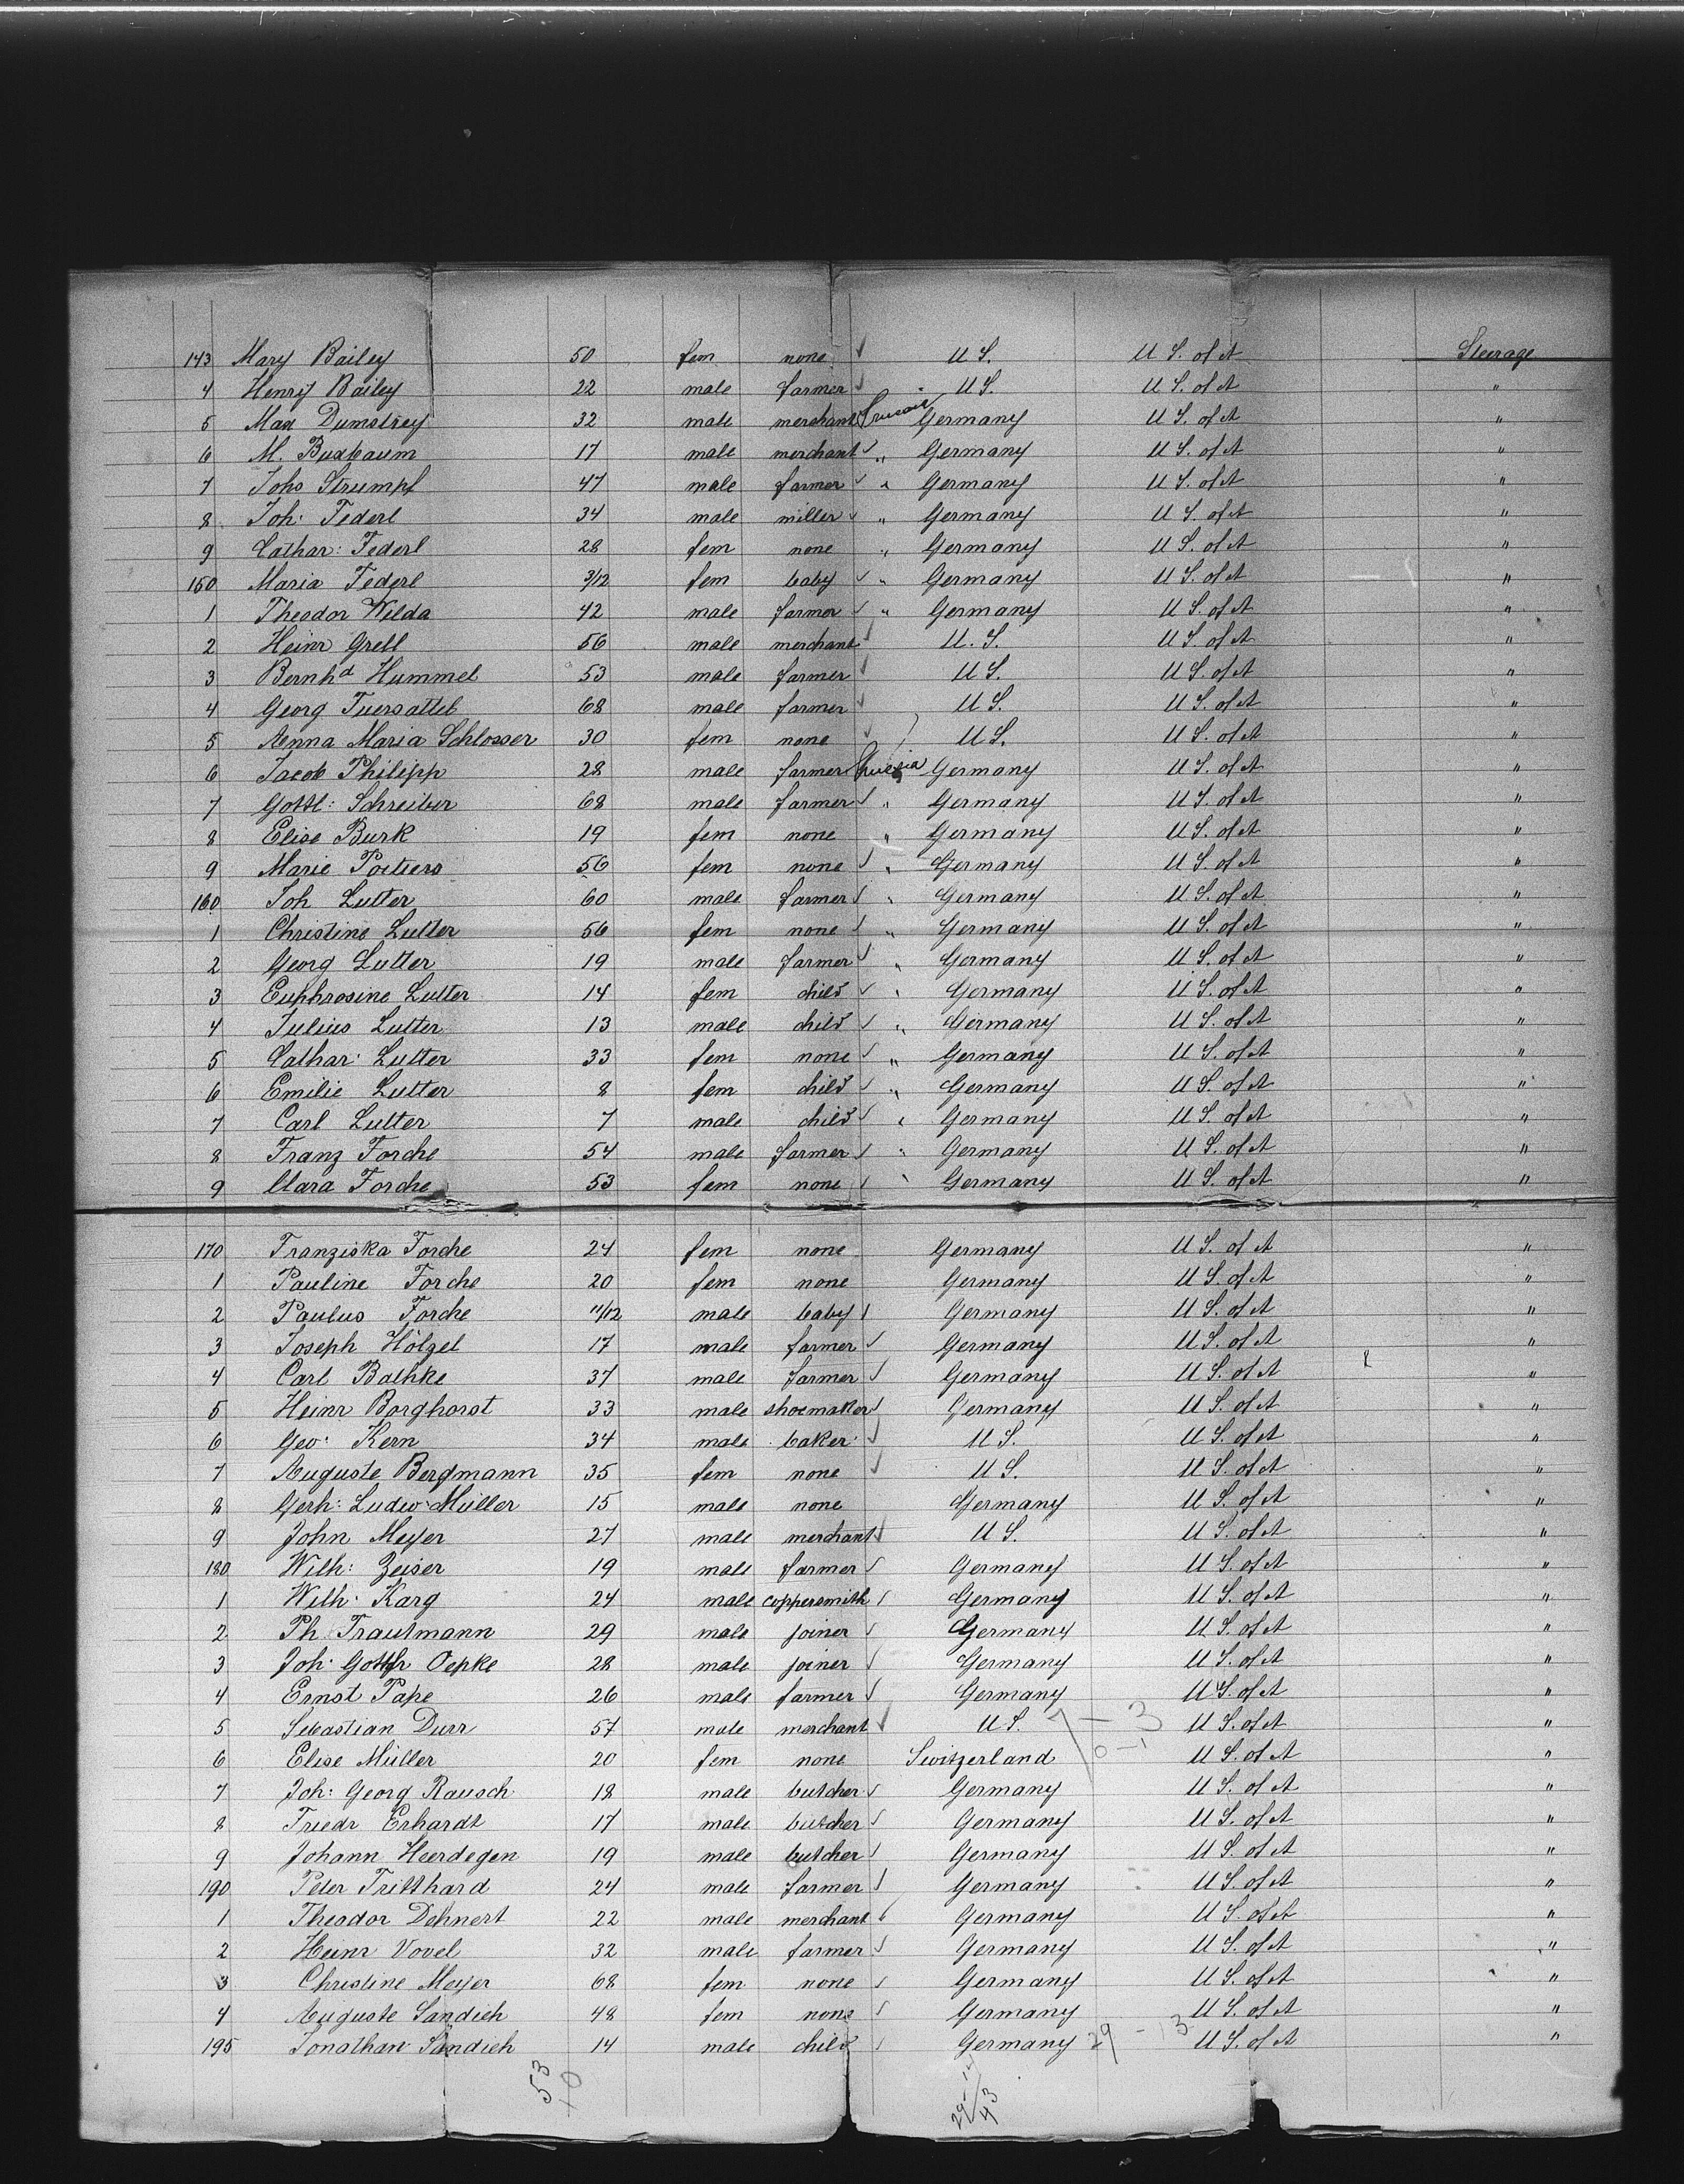 143 Mary Bailey 50 fem none ✓ U S. U S. of A Steerage
4 Henry Bailey 22 male farmer ✓ U S. U S. of A "
5 Max Dumstrey 32 male merchant Prussia Germany U S. of A "
6 M. Buxbaum 17 male merchant ✓ " Germany U S. of A "
7 Johs Strumpf 47 male farmer ✓ " Germany U S. of A "
8 Joh: Federl 34 male miller ✓ " Germany U S. of A "
9 Cathar: Federl 28 fem none " Germany U S. of A "
150 Maria Federl 3/12 fem baby ✓ " Germany U S. of A "
1 Theodor Wilda 42 male farmer ✓ " Germany U S. of A "
2 Heinr Grell 56 male merchant ✓ U. S. U S. of A "
3 Bernhd Hummel 53 male farmer ✓ U S. U S. of A "
4 Georg 68 male farmer ✓ U S. U S. of A "
5 Anna Maria Schlosser 30 fem none ✓ U S. U S. of A "
6 Jacob Philipp 28 male farmer Prussia Germany U S. of A "
7 Gottl: Schreiber 68 male farmer ✓ " Germany U S. of A "
8 Elise Burk 19 fem none " Germany U S. of A "
9 Marie Poitiers 56 fem none ✓ " Germany U S. of A "
160 Joh Lutter 60 male farmer ✓ " Germany U S. of A "
1 Christine Lutter 56 fem none ✓ " Germany U S. of A "
2 Georg Lutter 19 male farmer ✓ " Germany U S. of A "
3 Euphrosine Lutter 14 fem child ✓ " Germany U S. of A "
4 Julius Lutter 13 male child ✓ " Germany U S. of A "
5 Cathar: Lutter 33 fem none ✓ " Germany U S. of A "
6 Emilie Lutter 8 fem child ✓ " Germany U S. of A "
7 Carl Lutter 7 male child ✓ " Germany U S. of A "
8 Franz Forche 54 male farmer ✓ " Germany U S. of A "
9 Clara Forche 53 fem none ✓ " Germany U S. of A "
170 Franziska Forche 24 fem none Germany U S. of A "
1 Pauline Forche 20 fem none Germany U S. of A "
2 Paulus Forche 11/12 male baby ✓ Germany U S. of A "
3 Joseph Hölzel 17 male farmer ✓ Germany U S. of A "
4 Carl Bathke 37 male farmer ✓ Germany U S. of A "
5 Heinr Borghorst 33 male shoemaker ✓ Germany U S. of A "
6 Geo: Kern 34 male baker ✓ U S. U S. of A "
7 Auguste Bergmann 35 fem none ✓ U S. U S. of A "
8 Gerh: Ludw: Müller 15 male none Germany U S. of A "
9 John Meyer 27 male merchant ✓ U S. U S. of A "
180 Wilh: Zeiser 19 male farmer ✓ Germany U S. of A "
1 Wilh: Karg 24 male coppersmith ✓ Germany U S. of A "
2 Ph Trautmann 29 male joiner ✓ Germany U S. of A "
3 Joh: Gottfr Oepke 28 male joiner ✓ Germany U S. of A "
4 Ernst Pape 26 male farmer ✓ Germany U S. of A "
5 Sebastian Durr 57 male merchant ✓ U S. U S. of A "
6 Elise Müller 20 fem none Switzerland U S. of A "
7 Joh: Georg Rausch 18 male butcher ✓ Germany U S. of A "
8 Friedr Erhardt 17 male butcher ✓ Germany U S. of A "
9 Johann Heerdegen 19 male butcher ✓ Germany U S. of A "
190 Peter Tritthard 24 male farmer ✓ Germany U S. of A "
1 Theodor Dehnert 22 male merchant ✓ Germany U S. of A "
2 Heinr Vovel 32 male farmer ✓ Germany U S. of A "
3 Christine Meyer 68 fem none ✓ Germany U S. of A "
4 Auguste Sandich 48 fem none ✓ Germany U S. of A "
195 Jonathan Sandich 14 male child ✓ Germany 29 - 13 U S. of A "
53
10
43